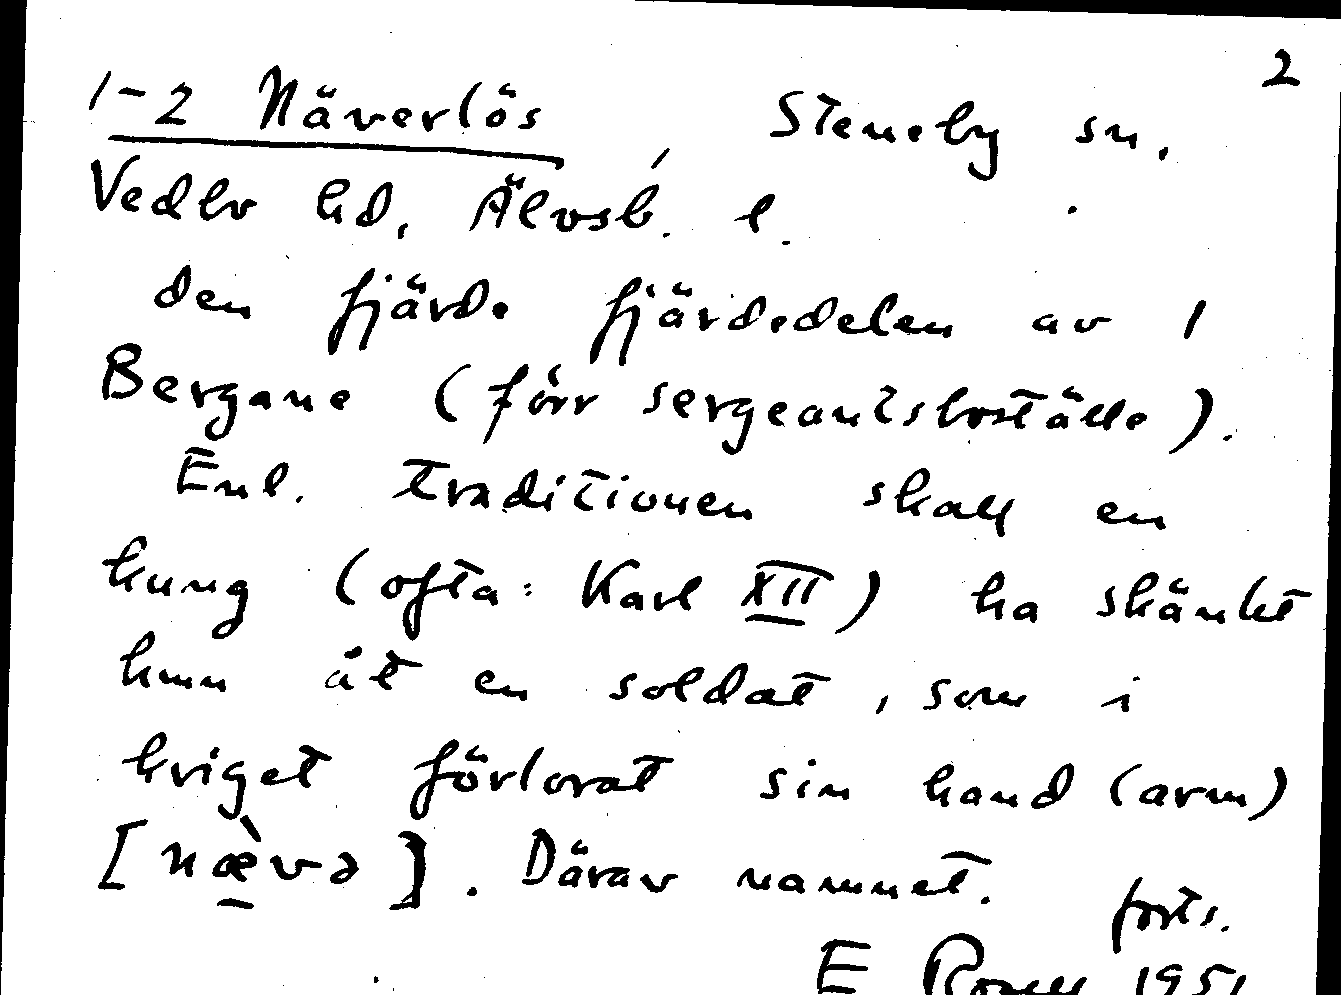 2
1-2 Näverlös, Steneby sn,
Vedbo hd, Älvsb. l.
den fjärde fjärdedelen av 1
Bergane (förr sergeantsboställe).
Enl. traditionen skall en
kung (ofta: Karl XII) ha skänkt
hmn åt en soldat, som i
kriget förlorat sin hand (arm)
[næ̀və]. Därav namnet.
forts.
E 1951